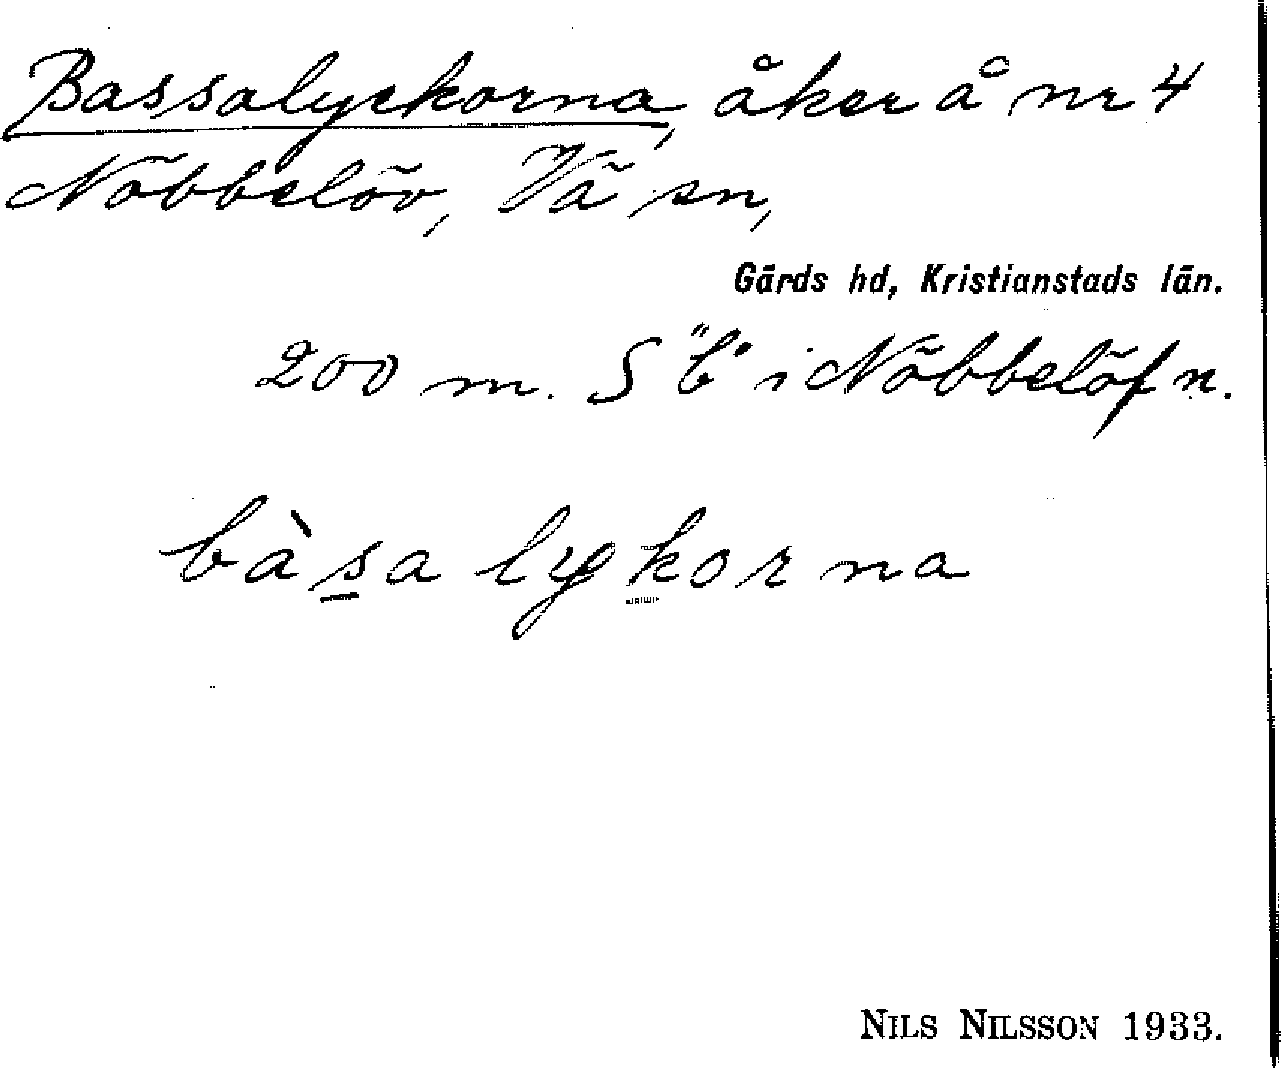 Bassalyckorna, åker å nr 4
Nöbbelöv, Vä sn,
Gärds hd, Kristianstads län.
200 m. S "b" i Nöbbelöf n.
bàsa lykorna
NILS NILSSON 1933.